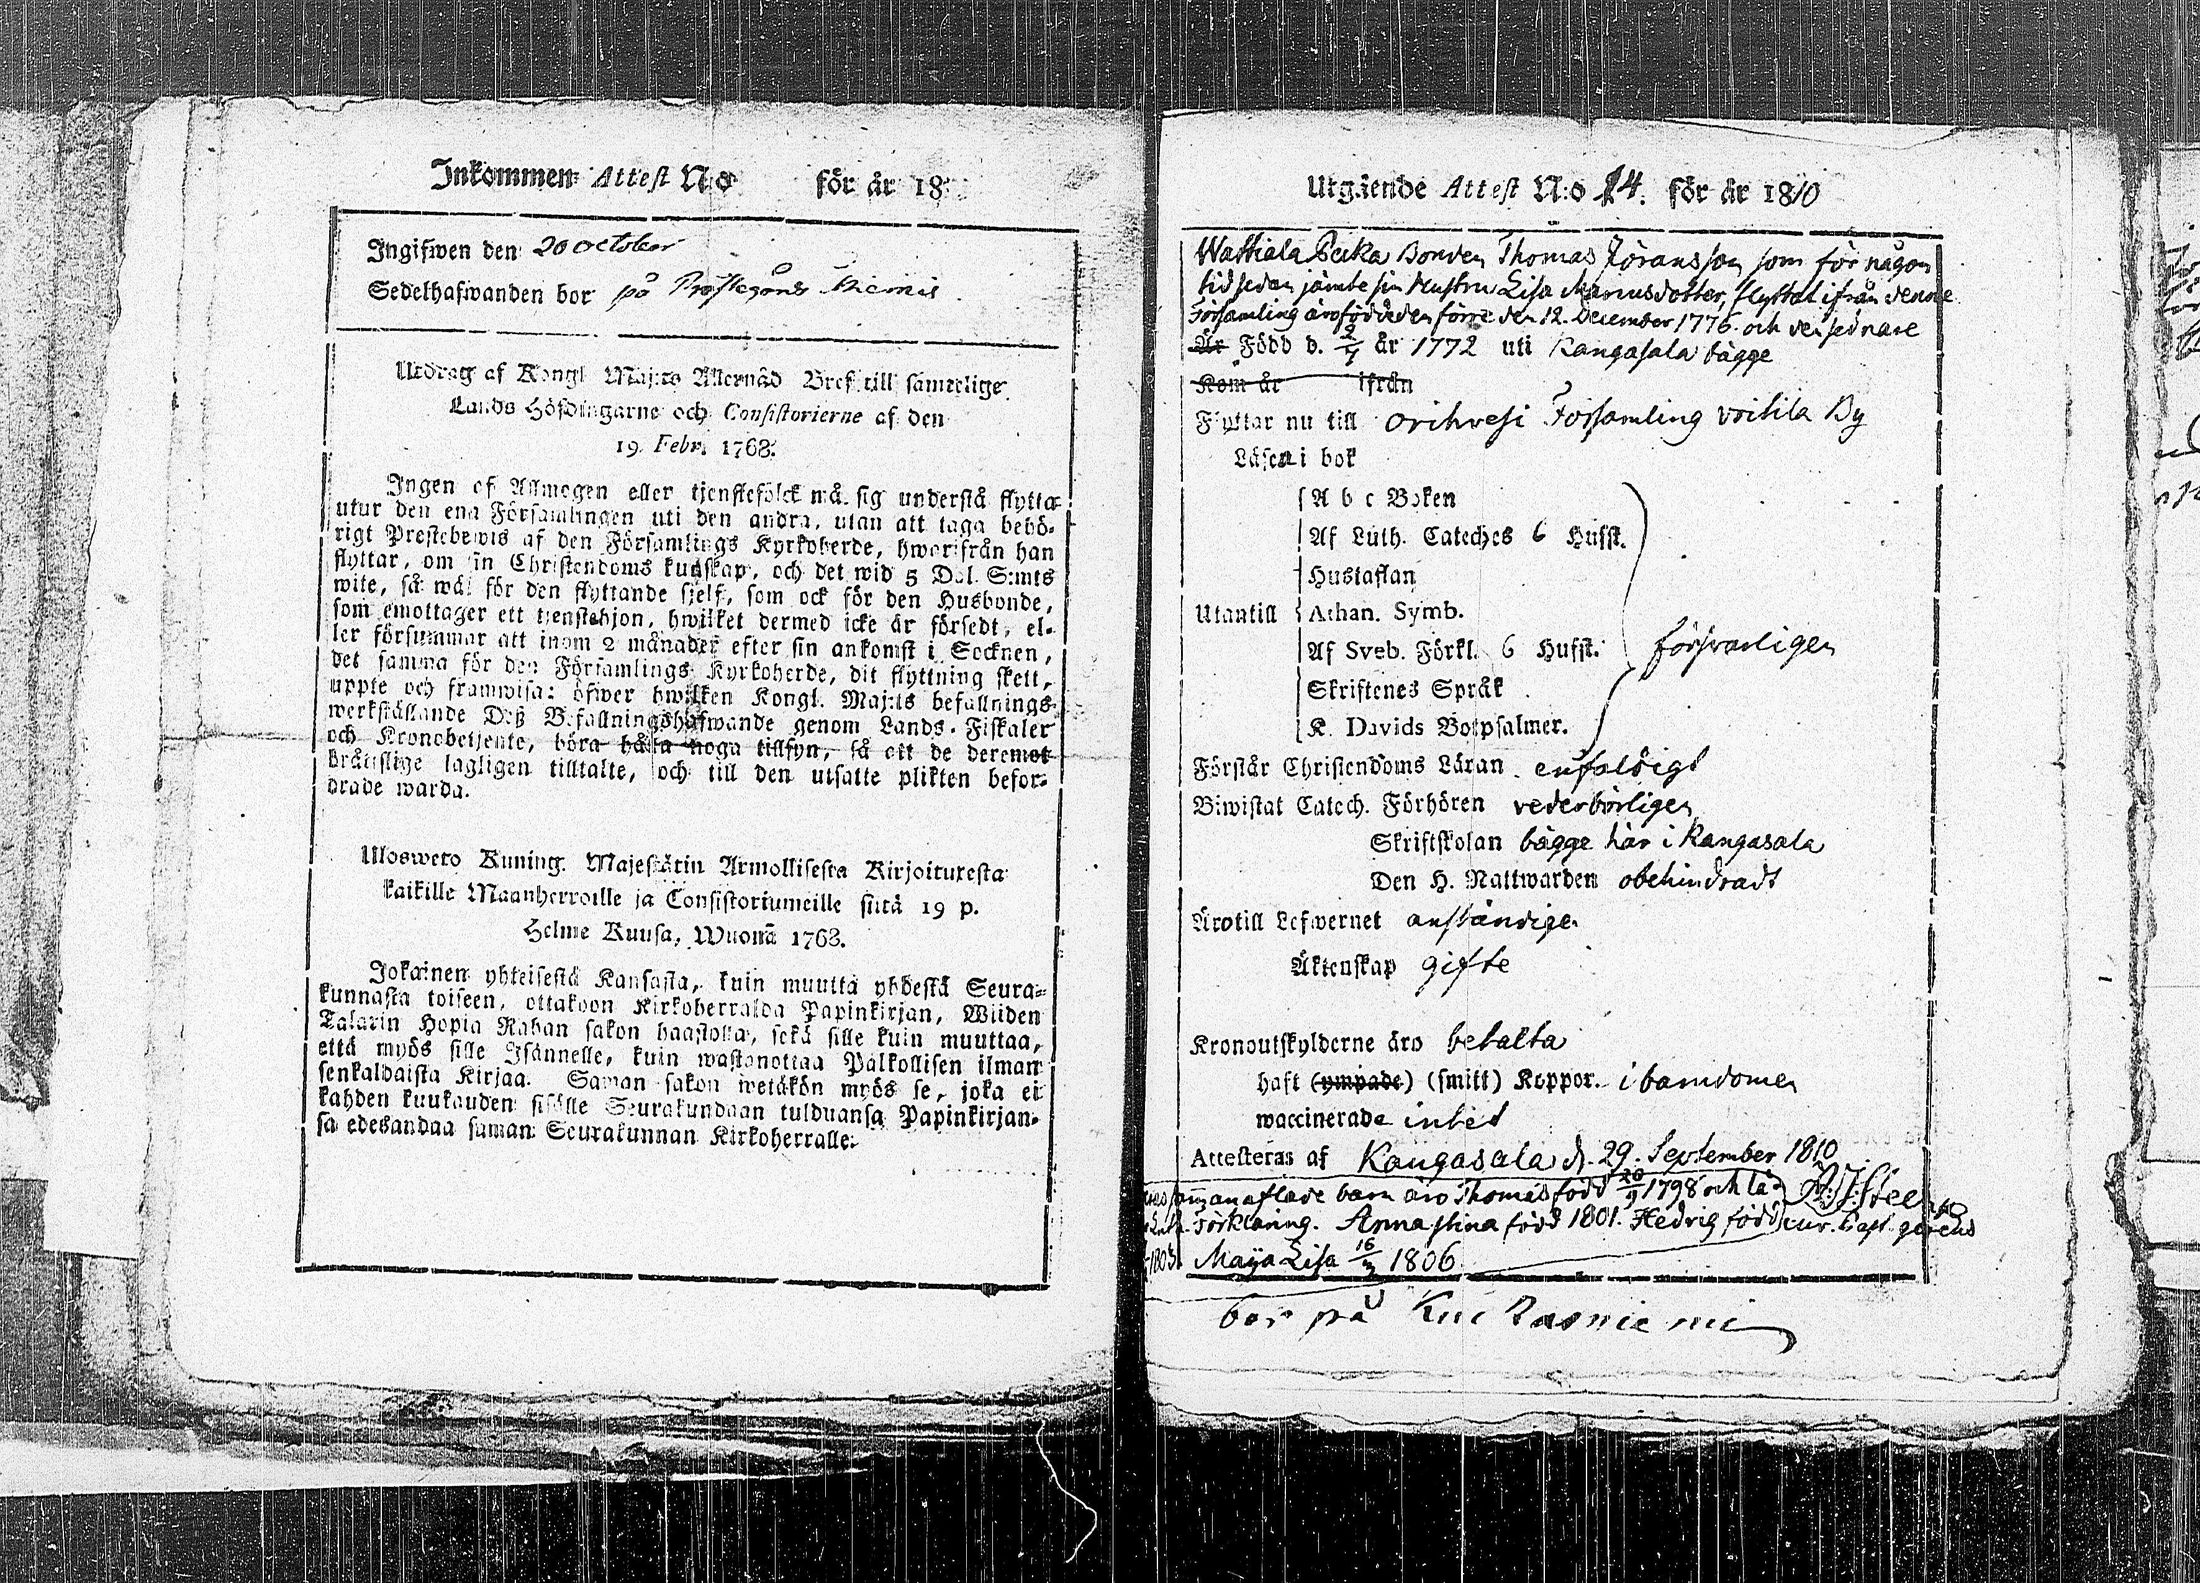 Inkommen Attest N:o för år 18
Ingifwen den 20 october
Sedelhafwanden bor på
Utdrag af Kongl Maj:ts Allernåd Bref till samtelige
Lands Höfdingarne och Consistorierne af den
19. Febr. 1768.
Ingen af Allmogen eller tjenstefolck må sig understå flytta
utur den ena Församlingen uti den andra, utan att taga behö-
rigt Prestebewis af den Församlings Kyrkoherde, hwarifrån han
flyttar, om sin Christendoms kunskap, och det wid 5 Dal. S:mts
wite, så wäl för den flyttande sjelf, som ock för den Husbonde,
som emottager ett tjenstehjon, hwilket dermed icke är försedt, el-
ler försummar att inom 2 månader efter sin ankomst i Socknen,
det samma för den Församlings Kyrkoherde, dit flyttning skett,
uppte och framwisa: öfwer hwilken Kongl. Maj:ts befallnings
werkställande Deß Befallningshafwande genom Lands-Fiskaler
och Kronobetjente, böra hålla noga tillsyn, så att de deremot
brätslige lagligen tilltalte, och till den utsatte plikten befor-
drade warda.
Ulosweto Kuning. Majestätin Armollisesta Kirjoituxesta
kaikille Maanherroille ja Consistoriumeille siitä 19 p.
Helme Kuusa, Wuonā 1768.
Jokainen yhteisestä Kansasta, kuin muutta yhdestä Seura-
kunnasta toiseen, ottakoon Kirkoherralda Papinkirjan, Wiiden
Talarin Hopia Rahan sakon haastolla, sekä sille kuin muuttaa,
että myös sille Isännelle, kuin wastanottaa Palkollisen ilman
senkaldaista Kirjaa. Saman sakon wetäkön myös se, joka ei
kahden kuukauden sisälle Seurakundaan tulduansa Papinkirjan-
sa edesandaa saman Seurakunnan Kirkoherralle.
Utgående Attest N:o 14. för år 1810
Wattiala Pecka Bonden Thomas Jöransson som för någon
tid sedan jämte sin Hustru Lisa Manusdotter, flyttat ifrån denne
Församling äro födde den förre den 12. December 1776. och den sednare
Är Född d. 2/7 år 1772 uti Kangasala bägge
Kom år ifrån
Flyttar nu till Orihvesi Församling Voitila By
Läsa i bok
A b c Boken
Af Luth. Cateches 6 Hufst.
Hustaflan
Utantill Athan. Symb.
Af Sveb. Förkl. 6 Hufst. försvarligen
Skriftenes Språk
K. Davids Botpsalmer.
Förstår Christendoms Läran enfaldigt
Biwistat Catech. Förhören vederbörligen
Skriftskolan bägge här i Kangasala
Den H. Nattwarden obehindradt
Äro till Lefwernet anständige
Äktenskap gifte
Kronoutskylderne äro betalta
haft (ympade) (smitt) Koppor. i barndomen
waccinerade intet
Attesteras af Kangasala d. 29. September 1810
sammanaflade barn äro Thomas född 20/9 1798 och lä-
Förklaring. Anna Stina född 1801. Hedvig född cur. Past. gerens
1803. Maija Lisa 16/3 1806
bor på